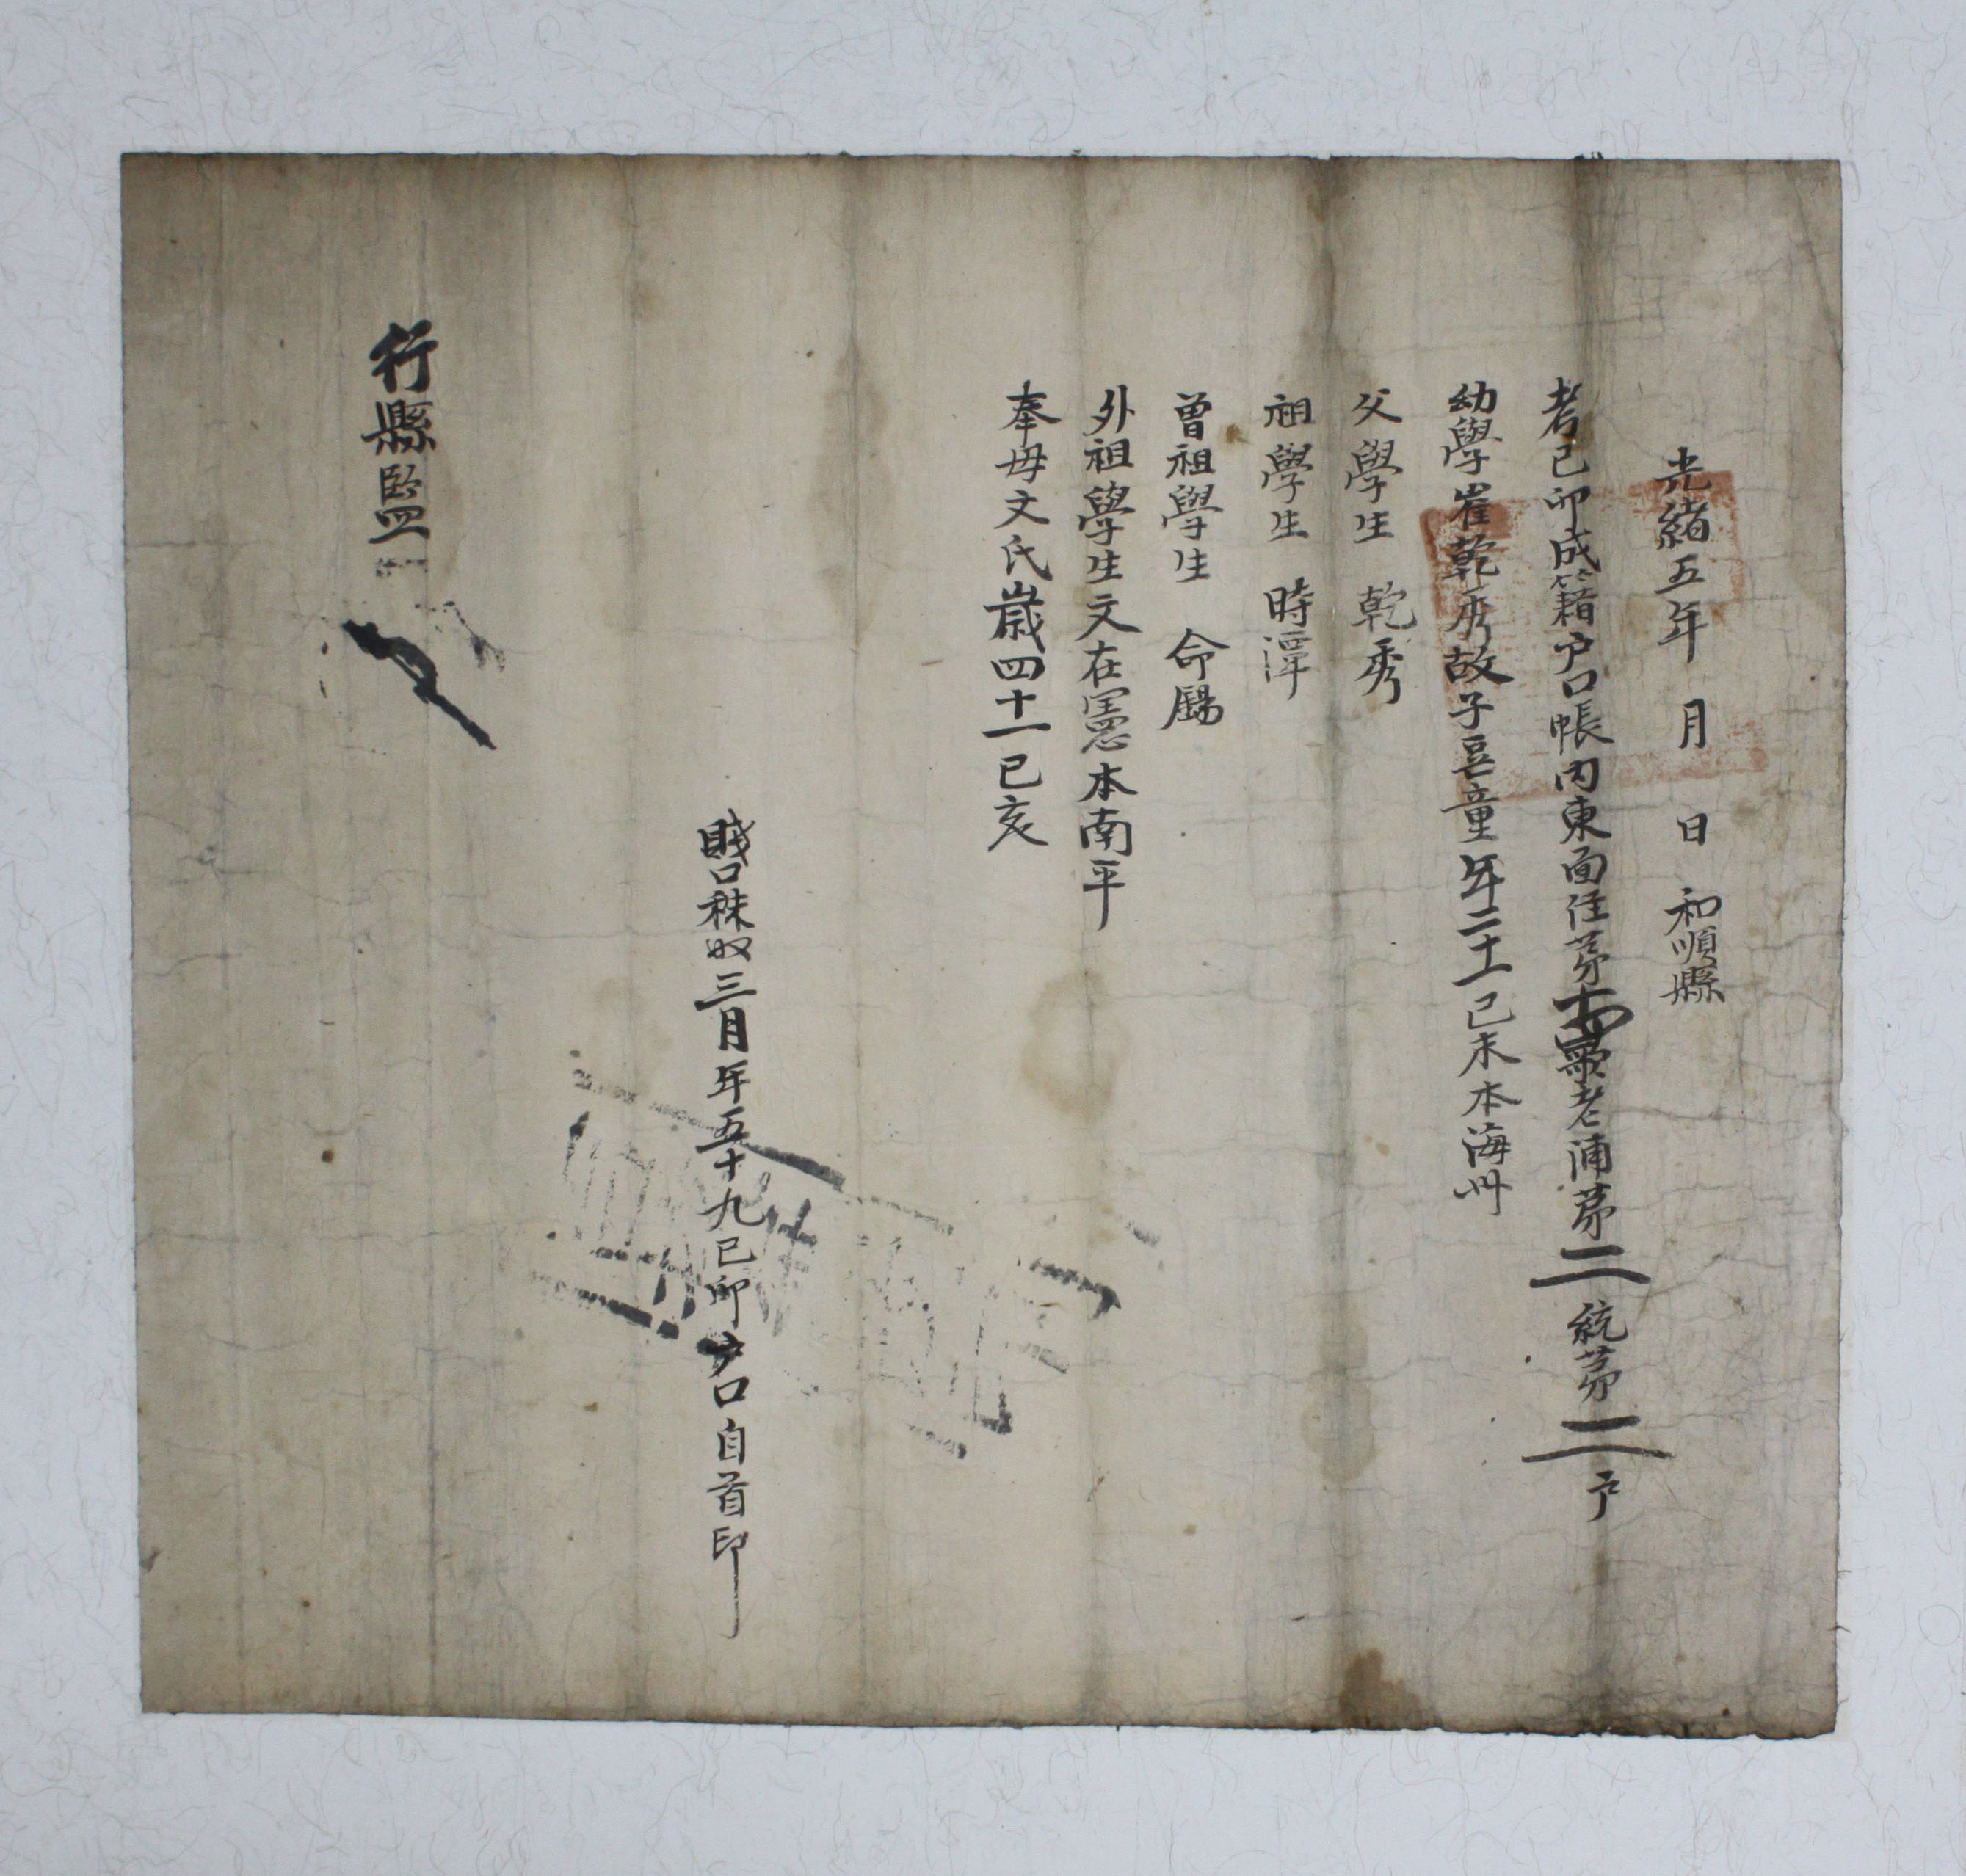 光緖五年 月 日 和順縣
考己卯成籍戶口帳內東面住苐 老浦苐二統苐二戶
幼學崔乾秀故子 童年二十一己未本海州
父學生 乾秀
祖學生 時潭
曾祖學生 命
外祖學生文在憲本南平
奉母文氏歲四十一己亥
賤口秩奴三月年五十九己卯戶口自首印
行縣監